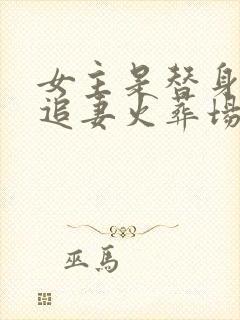 女主是替身
追妻火葬场
巫馬